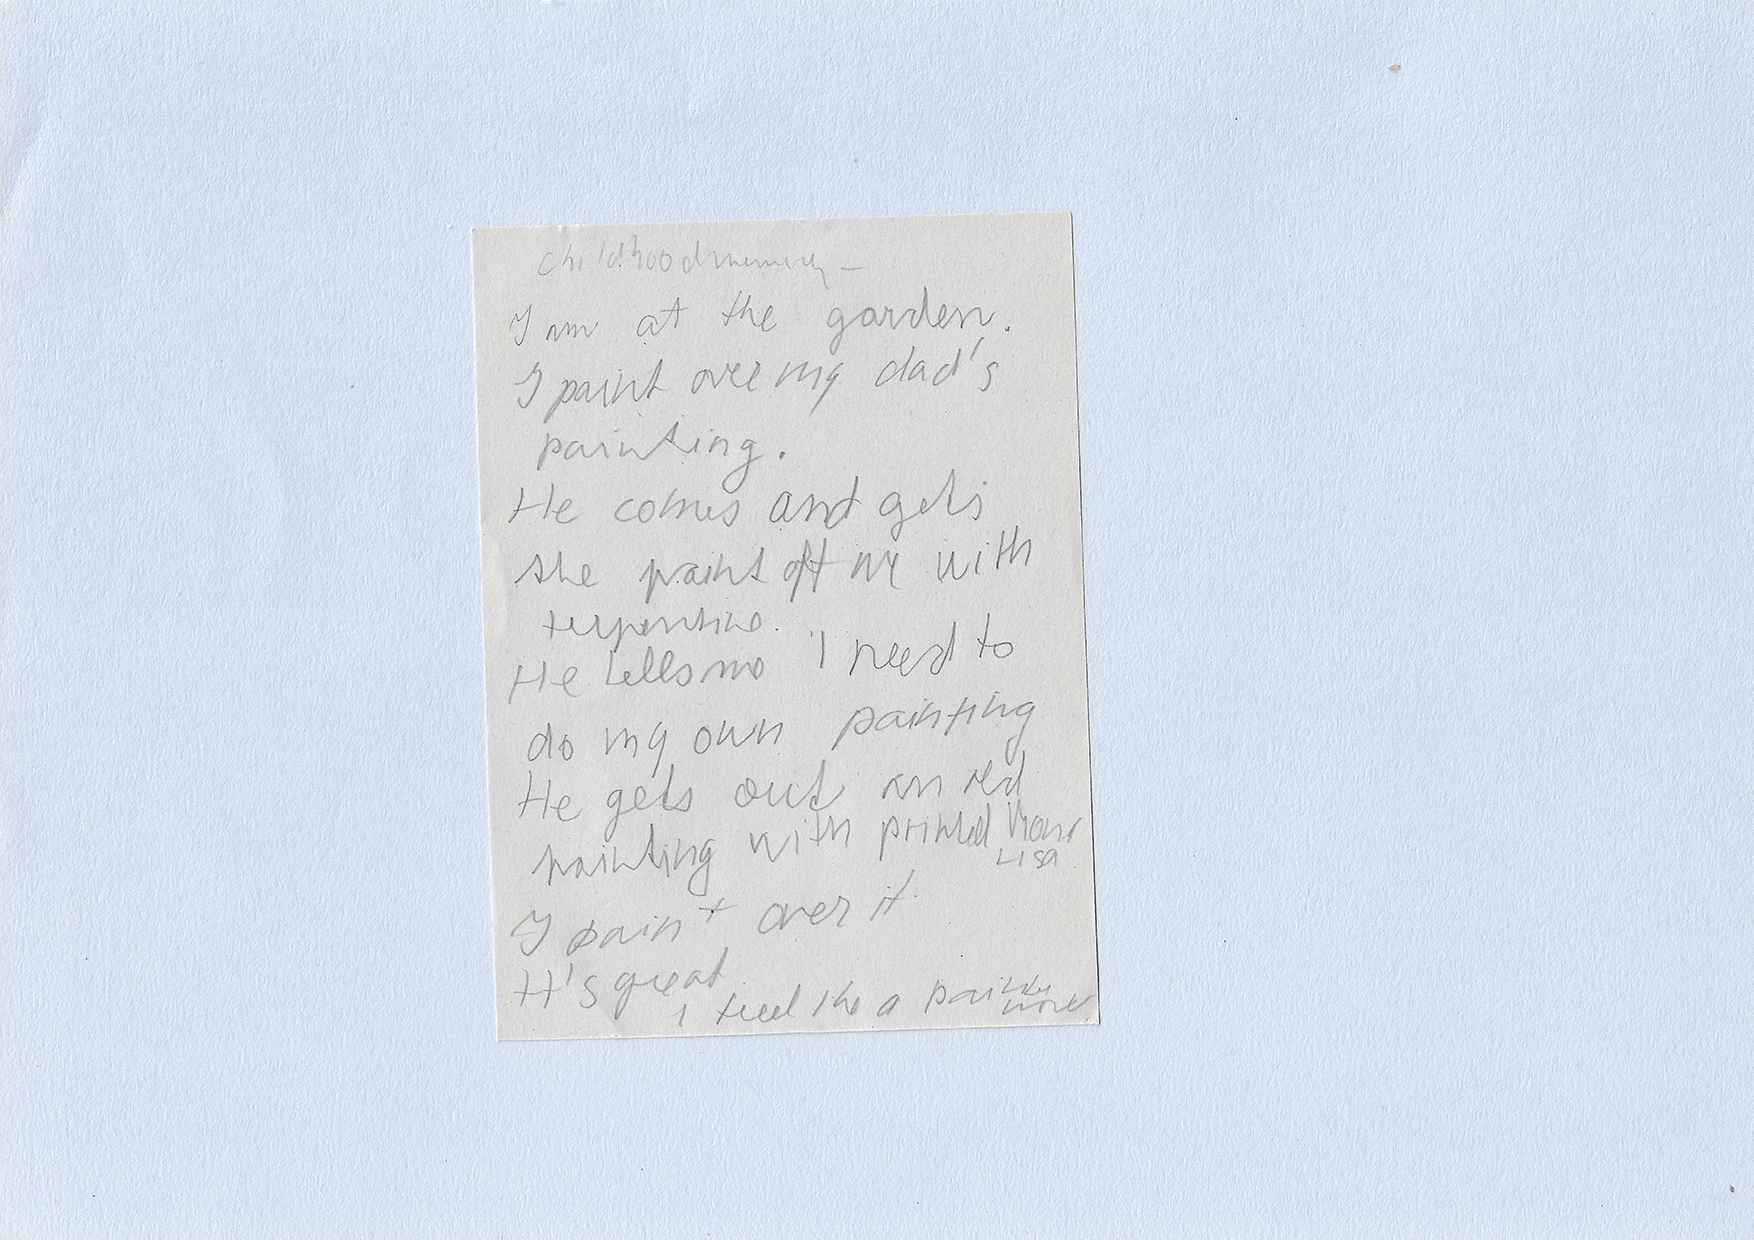 childhoodmemory –
I'm at the garden.
I paint over my dad's
painting.
He comes and gets
the paint off me with
terpentine.
He tells me I need to
do my own painting
He gets out an old
painting with printed Mona
Lisa.
I paint over it.
It's great
I feel like a painter